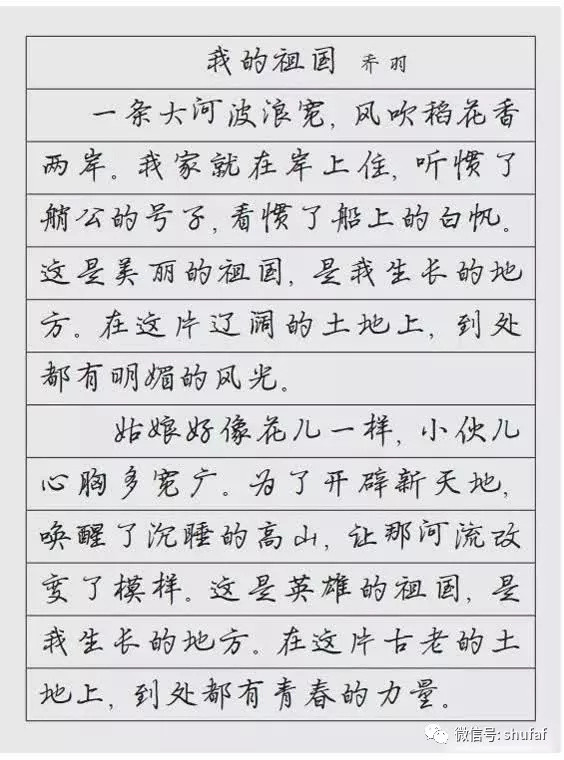 我的祖国 乔羽
一条大河波浪宽,风吹稻花香
两岸。我家就在岸上住,听惯了
艄公的号子,看惯了船上的白帆。
这是美丽的祖国,是我生长的地
方。在这片辽阔的土地上,到处
都有明媚的风光。
姑娘好像花儿一样,小伙儿
心胸多宽广。为了开辟新天地,
唤醒了沉睡的高山,让那河流改
变了模样。这是英雄的祖国,是
我生长的地方。在这片古老的土
地上,到处都有青春的力量。
微信号: shufaf